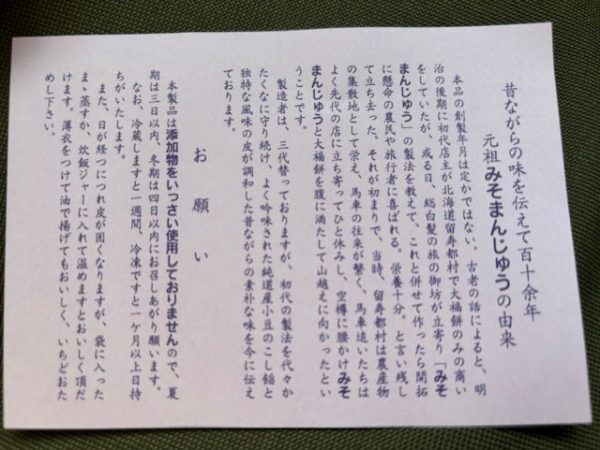 昔ながらの味を伝えて百十余年
元祖みそまんじゅうの由来
本品の創製年月は定かではない。古老の話によると、明
治の後期に初代店主が北海道留寿都村で大福餅のみの商い
をしていたが、或る日、総白髪の旅の御坊が立寄り「みそ
まんじゅう」の製法を教えて、これと併せて作ったら開拓
に懸命の農民や旅行者に喜ばれる。栄養十分。と言い残し
て立ち去った。それが初まりで、当時、留寿都村は農産物
の集散地として栄え、馬車の往来が繁く、馬車追いたちは
よく先代の店に立ち寄ってひと休みし、空樽に腰かけみそ
まんじゅうと大福餅を腹に満たして山越えに向かったとい
うことです。
製造者は、三代替っておりますが、初代の製法を代々か
たくなに守り続け、よく吟味された純道産小豆のこし餡と
独特な風味の皮が調和した昔ながらの素朴な味を今に伝え
ております。
お願い
本製品は添加物をいっさい使用しておりませんので、夏
期は三日以内、冬期は四日以内にお召しあがり願います。
なお、冷蔵しますと一週間、冷凍ですと一ケ月以上日持
ちがいたします。
また、日が経つにつれ皮が固くなりますが、袋に入った
まゝ蒸すか、炊飯ジャーに入れて温めますとおいしく頂だ
けます。薄衣をつけて油で揚げてもおいしく、いちどおた
めし下さい。